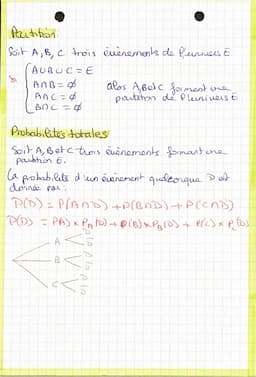 Partition
Soit A, B, C trois évènements de l'univers E
AUBUC = E
A∩B = ∅
A∩C = ∅
B∩C = ∅
alors A, B et C forment une
partition de l'univers E
Probabilités totales
Soit A, B et C trois évènements formant une
partition E.
La probabilité d'un évènement quelconque D est
donnée par :
P(D) = P(A∩D) + P(B∩D) + P(C∩D)
P(D) = P(A) x P_A(D) + P(B) x P_B(D) + P(C) x P_C(D)
D
A
D̅
D
B
D̅
D
C
D̅